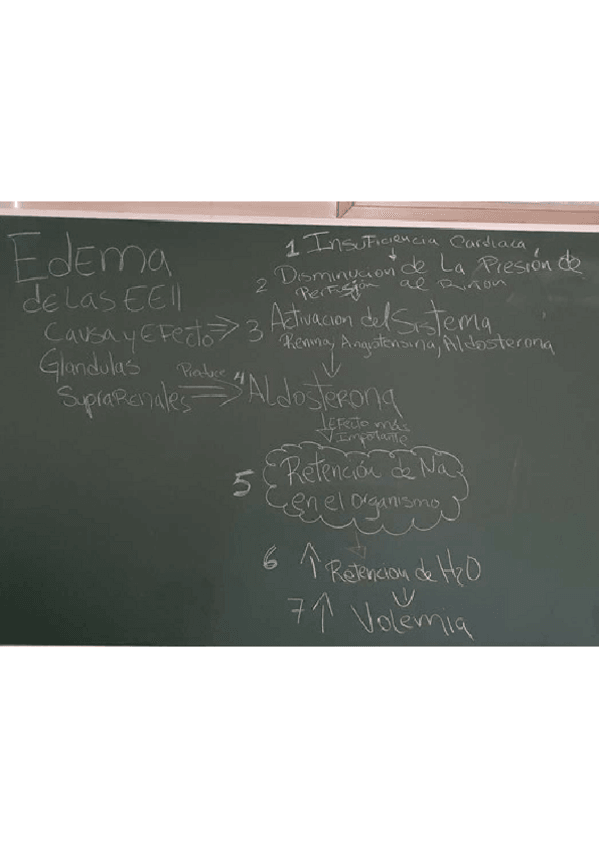 Edema
de Las EEII
Causa y Efecto ⇒
Glandulas
SupraRenales
Produce ⇒
1 Insuficiencia Cardiaca
↓
2 Disminucion de La Presión de
Perfusion al Riñon
3 Activacion del Sistema
Renina, Angiotensina, Aldosterona
↓
4 Aldosterona
↓ Efecto más
Impotante
5 Retención de Na
en el organismo
↓
6 ↑ Retencion de H2O
↓
7 ↑ Volemia